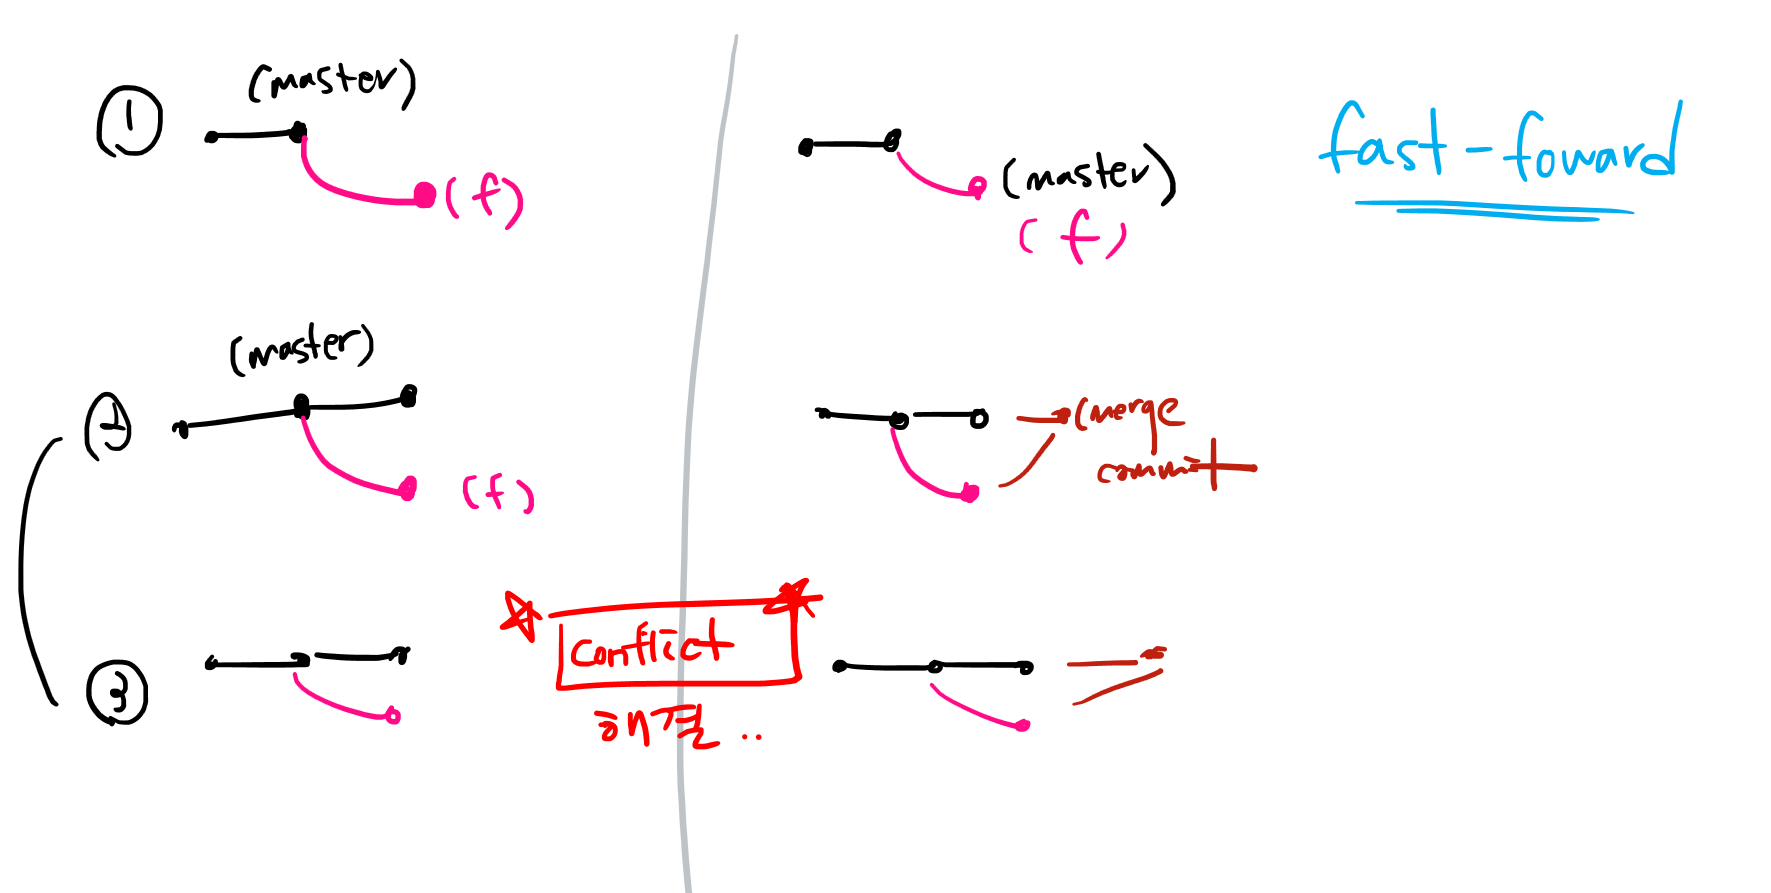 ① (master)
(f)
(master)
(f)
fast-foward
② (master)
(f)
(merge
commit
③
conflict
해결 ..